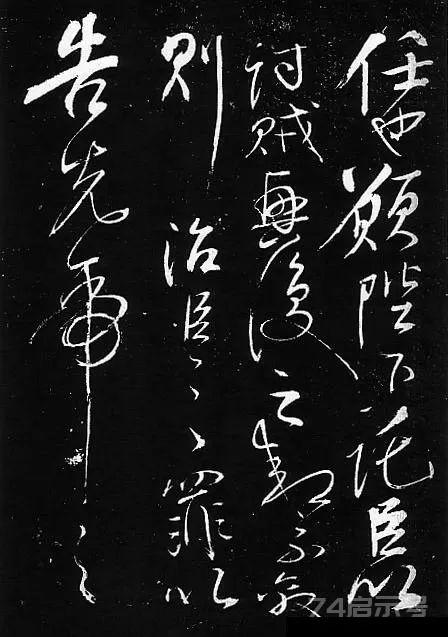 任也願陛下託臣以
討賊興復之效不效
則治臣之罪以
告先帝之
74启示号